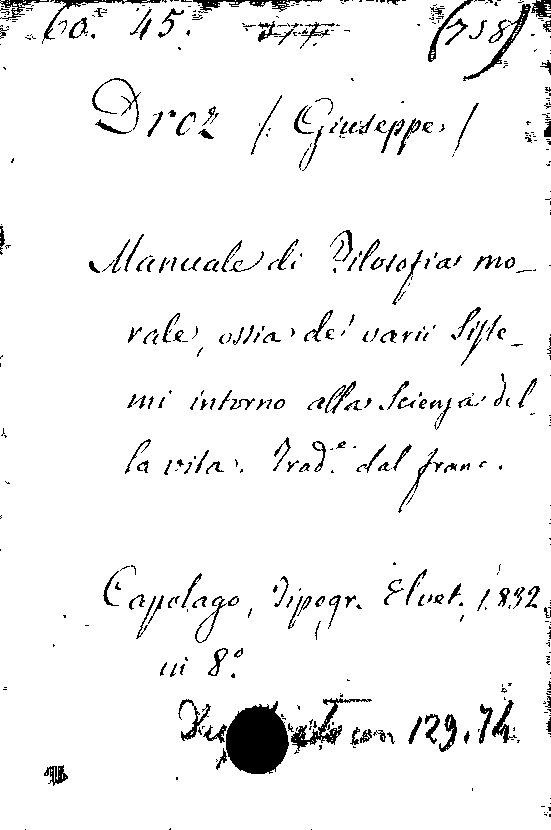 60. 45. (758)
Droz /: Giuseppe: /
Manuale di Filosofia mo-
rale, ossia de' varii Siste-
mi intorno alla Scienza del-
la vita. Trad.e dal franc.
Capolago, Tipogr. Elvet. 1832.
in 8.o
con 129.74